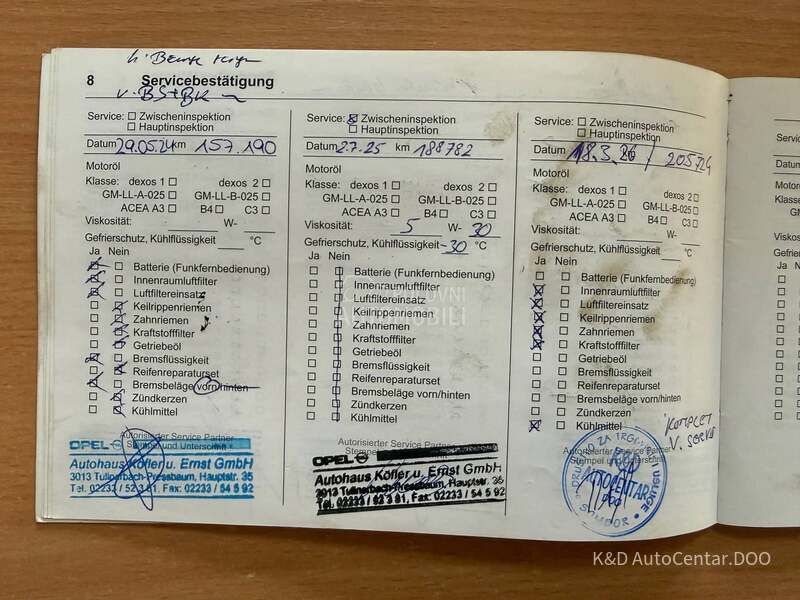 8 Servicebestätigung
v. BS+BK
Service: ☐ Zwischeninspektion
☐ Hauptinspektion
Datum 29.05.24 km 157.190
Motoröl
Klasse: dexos 1 ☐ dexos 2 ☐
GM-LL-A-025 ☐ GM-LL-B-025 ☐
ACEA A3 ☐ B4 ☐ C3 ☐
Viskosität: W-
Gefrierschutz, Kühlflüssigkeit °C
Ja Nein
Batterie (Funkfernbedienung)
Innenraumluftfilter
Luftfiltereinsatz
Keilrippenriemen
Zahnriemen
Kraftstofffilter
Getriebeöl
Bremsflüssigkeit
Reifenreparaturset
Bremsbeläge vorn/hinten
Zündkerzen
Kühlmittel
Autorisierter Service Partner
Stempel und Unterschrift
OPEL
Autohaus Köfler u. Ernst GmbH
3013 Tullnerbach-Pressbaum, Hauptstr. 35
Tel. 02233 / 52 3 81, Fax: 02233 / 54 5 92
Service: ☒ Zwischeninspektion
☐ Hauptinspektion
Datum 2.7.25 km 188782
Motoröl
Klasse: dexos 1 ☐ dexos 2 ☐
GM-LL-A-025 ☐ GM-LL-B-025 ☐
ACEA A3 ☐ B4 ☐ C3 ☐
Viskosität: 5 W- 30
Gefrierschutz, Kühlflüssigkeit -30 °C
Ja Nein
Batterie (Funkfernbedienung)
Innenraumluftfilter
Luftfiltereinsatz
Keilrippenriemen
Zahnriemen
Kraftstofffilter
Getriebeöl
Bremsflüssigkeit
Reifenreparaturset
Bremsbeläge vorn/hinten
Zündkerzen
Kühlmittel
Autorisierter Service Partner
Stempel
OPEL
Autohaus Köfler u. Ernst GmbH
3013 Tullnerbach-Pressbaum, Hauptstr. 35
Tel. 02233 / 52 3 81, Fax: 02233 / 54 5 92
Service: ☐ Zwischeninspektion
☐ Hauptinspektion
Datum 18.3.26 / 205724
Motoröl
Klasse: dexos 1 ☐ dexos 2 ☐
GM-LL-A-025 ☐ GM-LL-B-025 ☐
ACEA A3 ☐ B4 ☐ C3 ☐
Viskosität: W-
Gefrierschutz, Kühlflüssigkeit °C
Ja Nein
Batterie (Funkfernbedienung)
Innenraumluftfilter
Luftfiltereinsatz
Keilrippenriemen
Zahnriemen
Kraftstofffilter
Getriebeöl
Bremsflüssigkeit
Reifenreparaturset
Bremsbeläge vorn/hinten
Zündkerzen
Kühlmittel
KOMPLET
V. SERVIS
Autorisierter Service Partner
Stempel und Unterschrift
AUTOCENTAR
SOMBOR
Service
Datum
Motoröl
Klasse
Viskos
Gefrier
Ja N
K&D AutoCentar.DOO